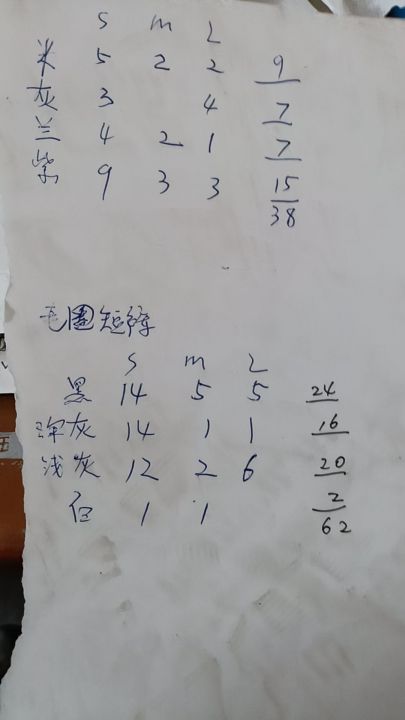 S M L
米 5 2 2 9
灰 3 4 7
兰 4 2 1 7
紫 9 3 3 15
38
毛圈短裤
S M L
黑 14 5 5 24
深灰 14 1 1 16
浅灰 12 2 6 20
白 1 1 2
62